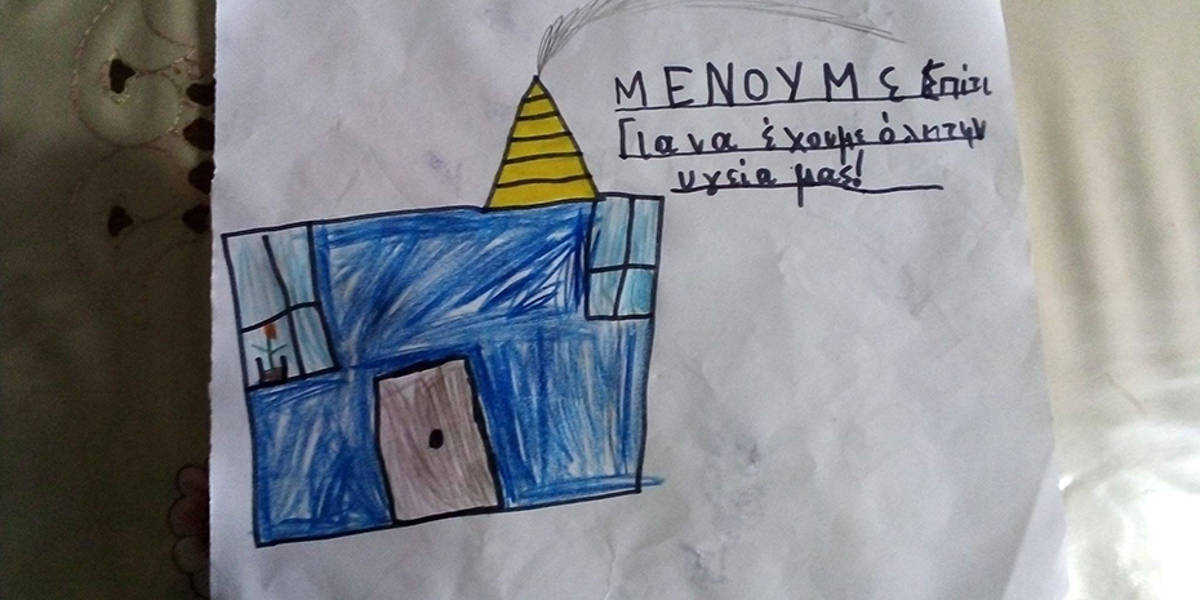 ΜΕΝΟΥΜΕ Σπίτι
Για να έχουμε όλη την
υγεία μας!